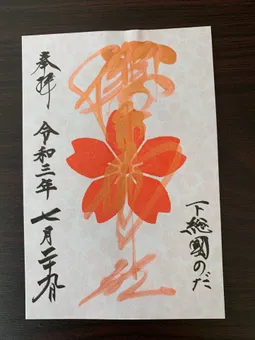 下総國のだ
櫻木神社
奉拝 令和三年 七月二十九日